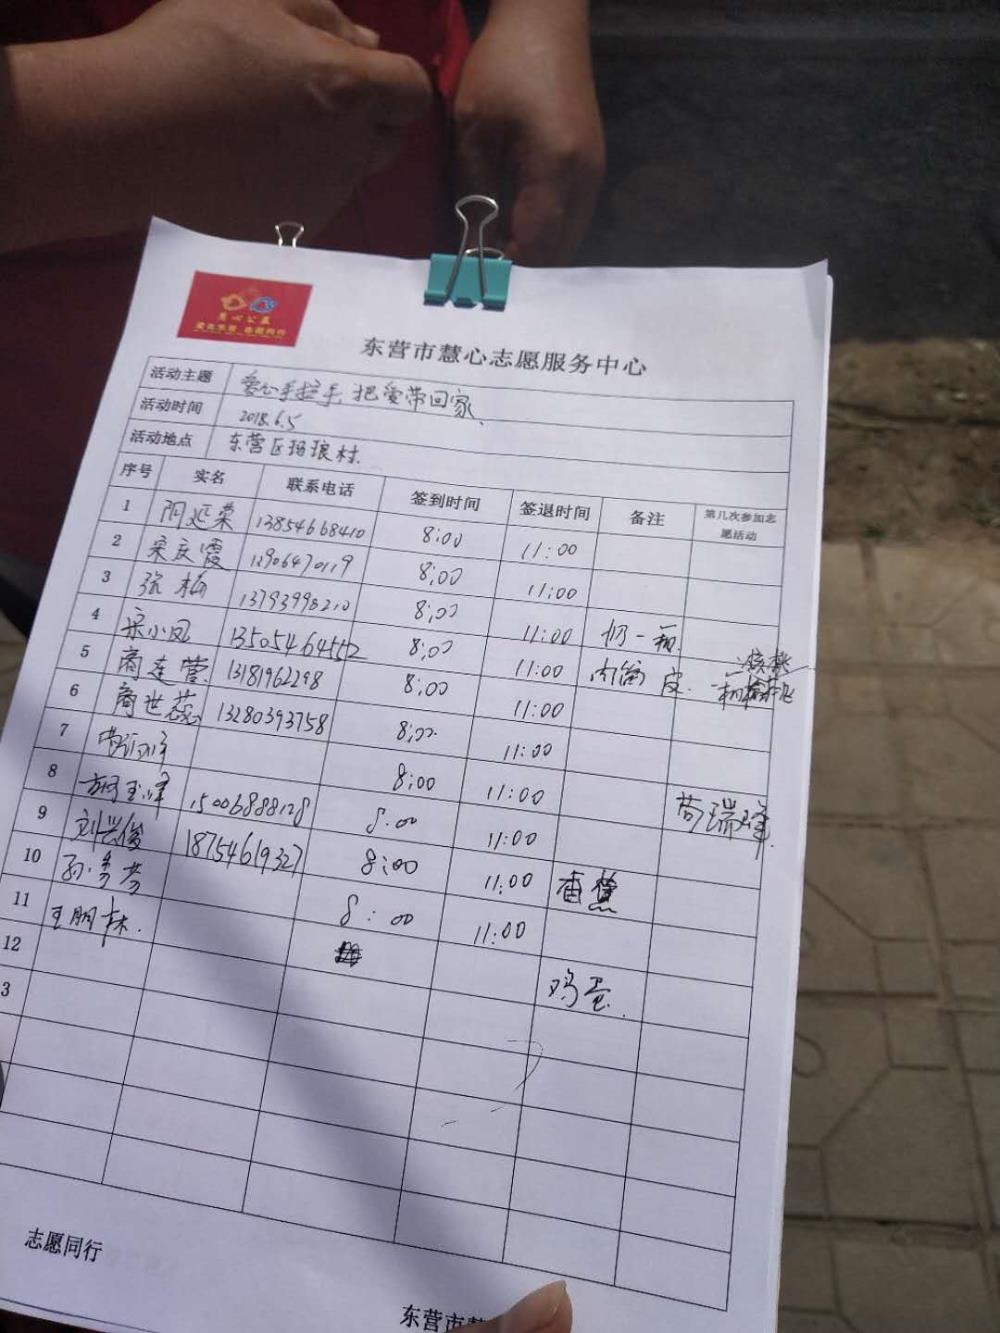 慧心公益
东营市慧心志愿服务中心
活动主题 爱心手拉手,把爱带回家、
活动时间 2018.6.5
活动地点 东营区玛琅村.
序号 实名 联系电话 签到时间 签退时间 备注 第几次参加志愿活动
1 阴延荣 13854668410 8:00 11:00
2 宋庆霞 12906470119 8:00 11:00
3 张梅 13793998210 8:00 11:00 奶一瓶
4 宋小凤 13505464552 8:00 11:00 肉 皮.
5 商连营 13181962298 8:00 11:00
6 商世蕊 13280393758 8:00 11:00
7 8:00 11:00 苟瑞峰.
8 玉峰 15006888128 8:00 11:00
9 刘兴俊 18754619327 8:00 11:00 香蕉
10 孙秀芳 8:00 11:00
11 王朋林. 鸡蛋.
12
3
志愿同行
东营市慧